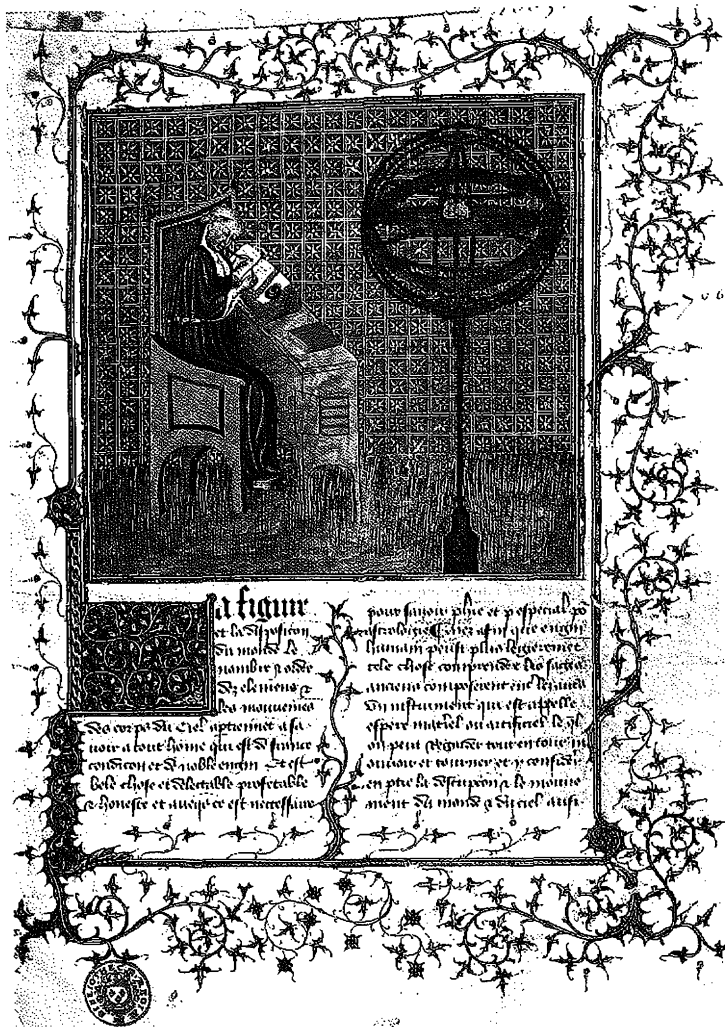 La figure
et la disposicion
du monde le
nombre & ordre
des elemens &
les mouvemens
des corps du ciel aptiennet a sa-
voir a tout home qui est d franche
condicon et d noble engin Et est
bele chose et delectable profitable
& honeste et aveqs ce est necessaire
pour savoir phie et p especial po
astrologie afin que engin
humain puist plus legierement
tele chose comprendre les sages
anciens composerent
un instrument qui est appelle
espere matiel ou artificiel le ql
on peut regarder tout entour m
ouvoir et tourner et y consider
en ptie la descripcon & le mouve
ment du monde & du ciel ausi